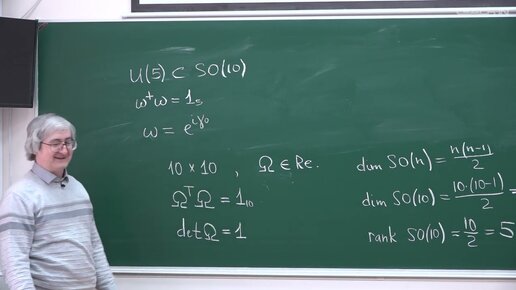 U(5) ⊂ SO(10)
ω⁺ω = 1₅
ω = e^{iγ₀}
10 × 10 , Ω ∈ Re.
ΩᵀΩ = 1₁₀
det Ω = 1
dim SO(n) = n(n-1)/2
dim SO(10) = 10·(10-1)/2 =
rank SO(10) = 10/2 = 5